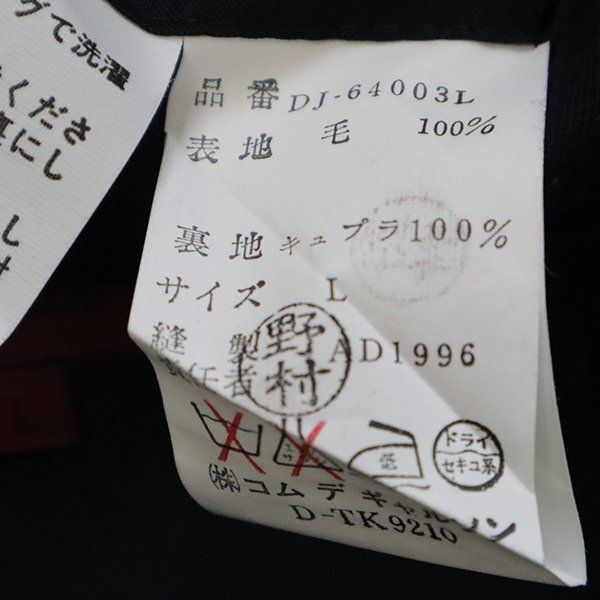 グで洗濯
ください
し
品番 DJ-64003L
表地 毛 100%
裏地 キュプラ100%
サイズ L
縫製 AD1996
者
野村
低
ドライ
セキユ系
㈱コムデギャルソン
D-TK9210